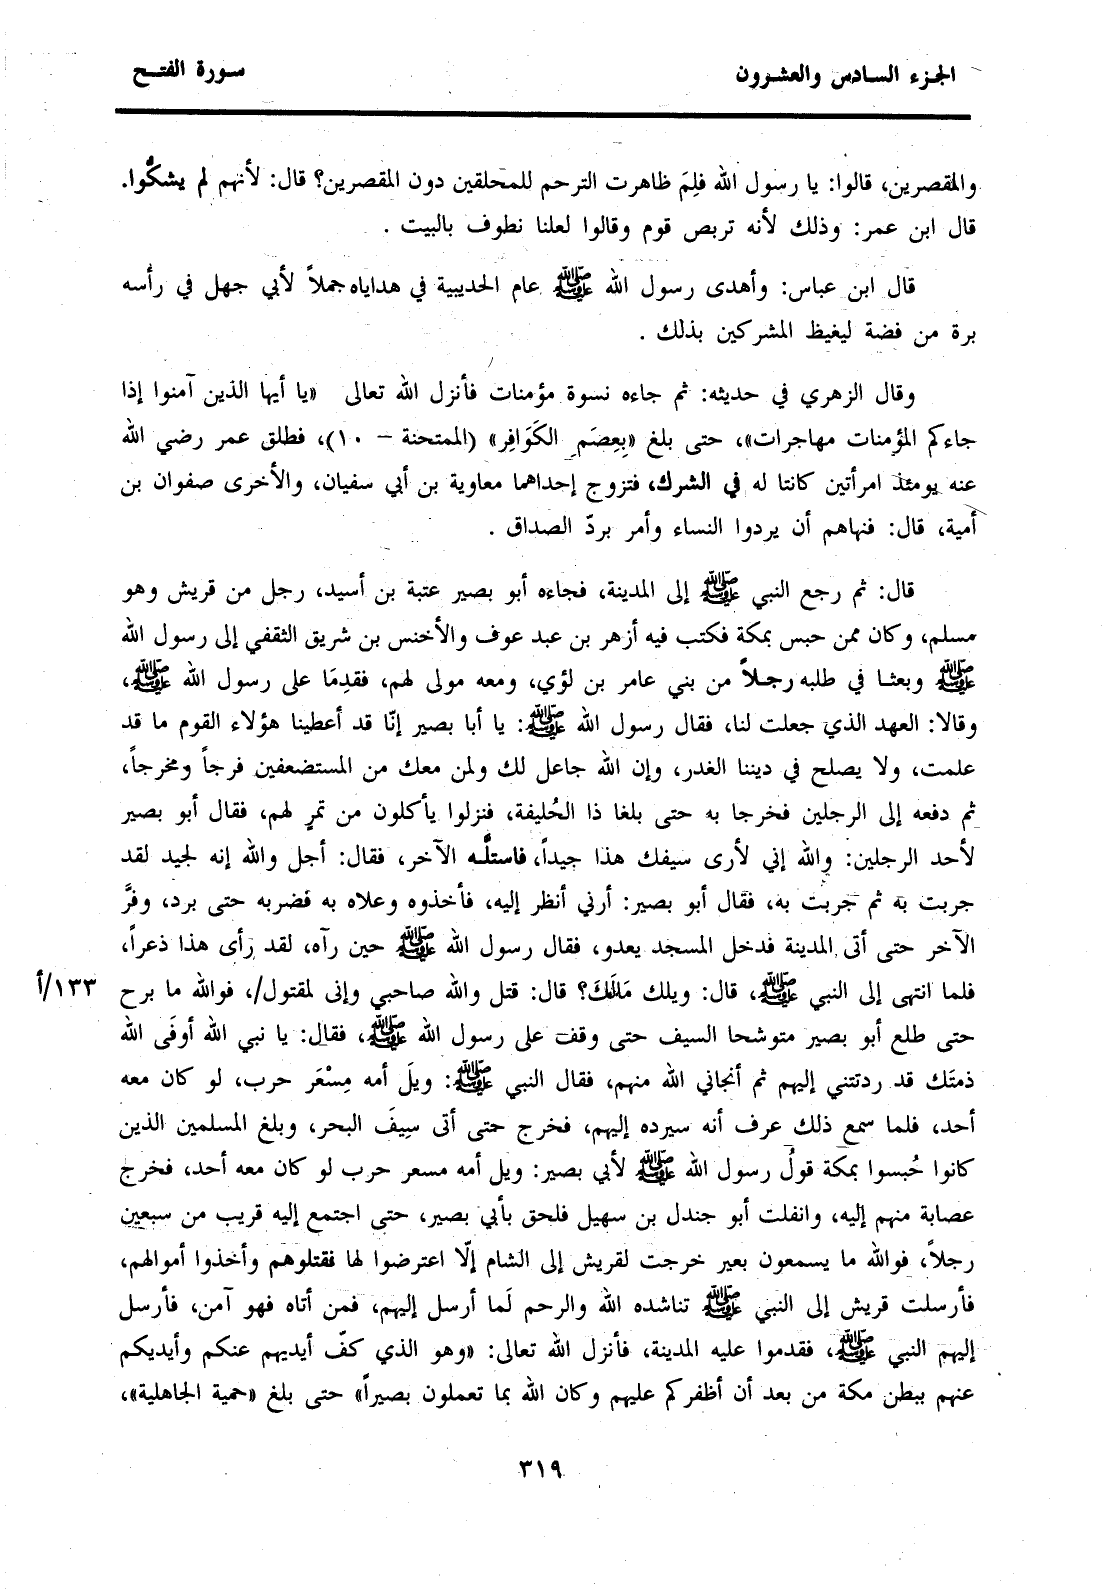 الجزء السادس والعشرون
سورة الفتح
والمقصرين، قالوا: يا رسول الله فلِمَ ظاهرت الترحم للمحلقين دون المقصرين؟ قال: لأنهم لم يشكُّوا.
قال ابن عمر: وذلك لأنه تربص قوم وقالوا لعلنا نطوف بالبيت .
قال ابن عباس: وأهدى رسول الله ﷺ عام الحديبية في هداياه جملاً لأبي جهل في رأسه
برة من فضة ليغيظ المشركين بذلك .
وقال الزهري في حديثه: ثم جاءه نسوة مؤمنات فأنزل الله تعالى «يا أيها الذين آمنوا إذا
جاءكم المؤمنات مهاجرات»، حتى بلغ «بِعِصَمِ الكَوَافِرِ» (الممتحنة – ١٠)، فطلق عمر رضي الله
عنه يومئذ امرأتين كانتا له في الشرك، فتزوج إحداهما معاوية بن أبي سفيان، والأخرى صفوان بن
أمية، قال: فنهاهم أن يردوا النساء وأمر بردّ الصداق .
قال: ثم رجع النبي ﷺ إلى المدينة، فجاءه أبو بصير عتبة بن أسيد، رجل من قريش وهو
مسلم، وكان ممن حبس بمكة فكتب فيه أزهر بن عبد عوف والأخنس بن شريق الثقفي إلى رسول الله
ﷺ وبعثا في طلبه رجلاً من بني عامر بن لؤي، ومعه مولى لهم، فقدِمَا على رسول الله ﷺ،
وقالا: العهد الذي جعلت لنا، فقال رسول الله ﷺ: يا أبا بصير إنّا قد أعطينا هؤلاء القوم ما قد
علمت، ولا يصلح في ديننا الغدر، وإن الله جاعل لك ولمن معك من المستضعفين فرجاً ومخرجاً،
ثم دفعه إلى الرجلين فخرجا به حتى بلغا ذا الحُليفة، فنزلوا يأكلون من تمرٍ لهم، فقال أبو بصير
لأحد الرجلين: والله إني لأرى سيفك هذا جيداً، فاستلَّه الآخر، فقال: أجل والله إنه لجيد لقد
جربت به ثم جربت به، فقال أبو بصير: أرني أنظر إليه، فأخذوه وعلاه به فضربه حتى برد، وفرَّ
الآخر حتى أتى المدينة فدخل المسجد يعدو، فقال رسول الله ﷺ حين رآه، لقد رأى هذا ذعراً،
فلما انتهى إلى النبي ﷺ، قال: ويلك مَالَكَ؟ قال: قتل والله صاحبي وإنى لمقتول/، فوالله ما برح
١٣٣/أ
حتى طلع أبو بصير متوشحا السيف حتى وقف على رسول الله ﷺ، فقال: يا نبي الله أوفَى الله
ذمتَك قد ردتتني إليهم ثم أنجاني الله منهم، فقال النبي ﷺ: ويلَ أمه مِسْعَر حرب، لو كان معه
أحد، فلما سمع ذلك عرف أنه سيرده إليهم، فخرج حتى أتى سِيفَ البحر، وبلغ المسلمين الذين
كانوا حُبسوا بمكة قولُ رسول الله ﷺ لأبي بصير: ويل أمه مسعر حرب لو كان معه أحد، فخرج
عصابة منهم إليه، وانفلت أبو جندل بن سهيل فلحق بأبي بصير، حتى اجتمع إليه قريب من سبعين
رجلاً، فوالله ما يسمعون بعير خرجت لقريش إلى الشام إلّا اعترضوا لها فقتلوهم وأخذوا أموالهم،
فأرسلت قريش إلى النبي ﷺ تناشده الله والرحم لَما أرسل إليهم، فمن أتاه فهو آمن، فأرسل
إليهم النبي ﷺ، فقدموا عليه المدينة، فأنزل الله تعالى: «وهو الذي كفّ أيديهم عنكم وأيديكم
عنهم ببطن مكة من بعد أن أظفركم عليهم وكان الله بما تعملون بصيراً» حتى بلغ «حمية الجاهلية»،
٣١٩